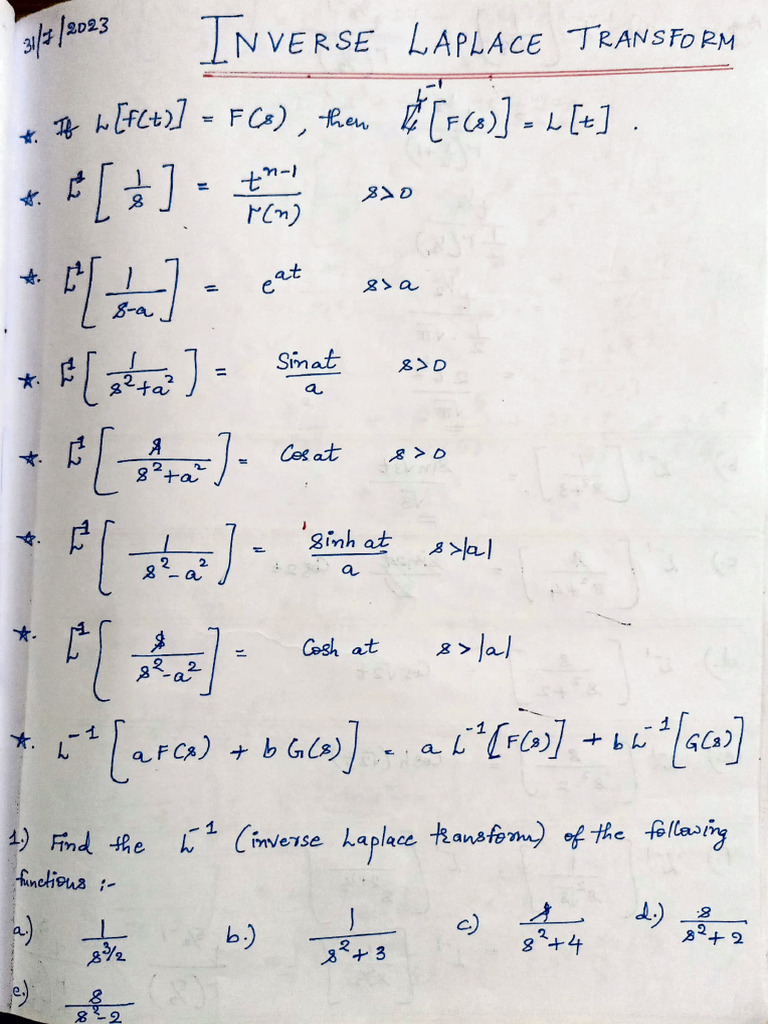 31/7/2023
INVERSE LAPLACE TRANSFORM
*. If L[f(t)] = F(s), then L⁻¹[F(s)] = L[t].
*. L⁻¹[1/s] = t^(n-1)/Γ(n) s>0
*. L⁻¹[1/(s-a)] = e^(at) s>a
*. L⁻¹[1/(s²+a²)] = Sinat/a s>0
*. L⁻¹[s/(s²+a²)] = Cosat s>0
*. L⁻¹[1/(s²-a²)] = Sinh at/a s>|a|
*. L⁻¹[s/(s²-a²)] = Cosh at s>|a|
*. L⁻¹[aF(s) + bG(s)] = a L⁻¹[F(s)] + b L⁻¹[G(s)]
1.) Find the L⁻¹ (inverse Laplace transform) of the following
functions :-
a.) 1/s^(3/2) b.) 1/(s²+3) c.) s/(s²+4) d.) s/(s²+2)
e.) s/(s²-2)